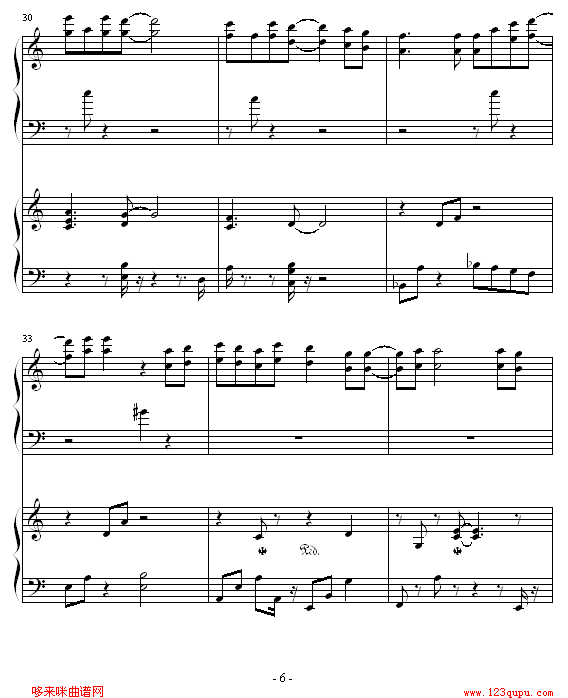 30
33
Ped.
- 6 -
哆来咪曲谱网
www.123qupu.com